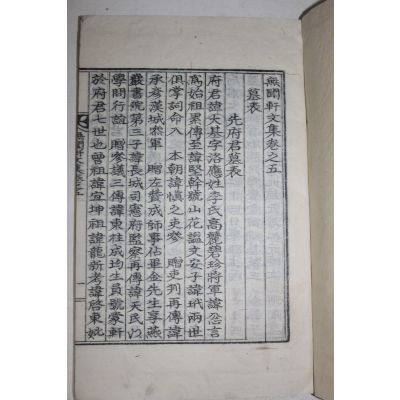 無聞軒文集卷之五
墓表
先府君墓表
府君諱天基字洛應姓李氏高麗碧珍將軍諱忩言
爲始祖累傳至諱堅幹號山花諡文安子諱玳兩世
俱掌詞命入 本朝諱愼之吏參 贈吏判再傳諱
承彦漢城參軍 贈左贊成師事佔畢金先生享燕
叢書院第三子諱長城司憲府監察再傳諱天民以
學問行誼 贈參議三傳諱東柱成均生員號豪軒
於府君七世也曾祖諱宜坤祖諱龍新考諱啓東妣
無聞軒文集卷之五
一